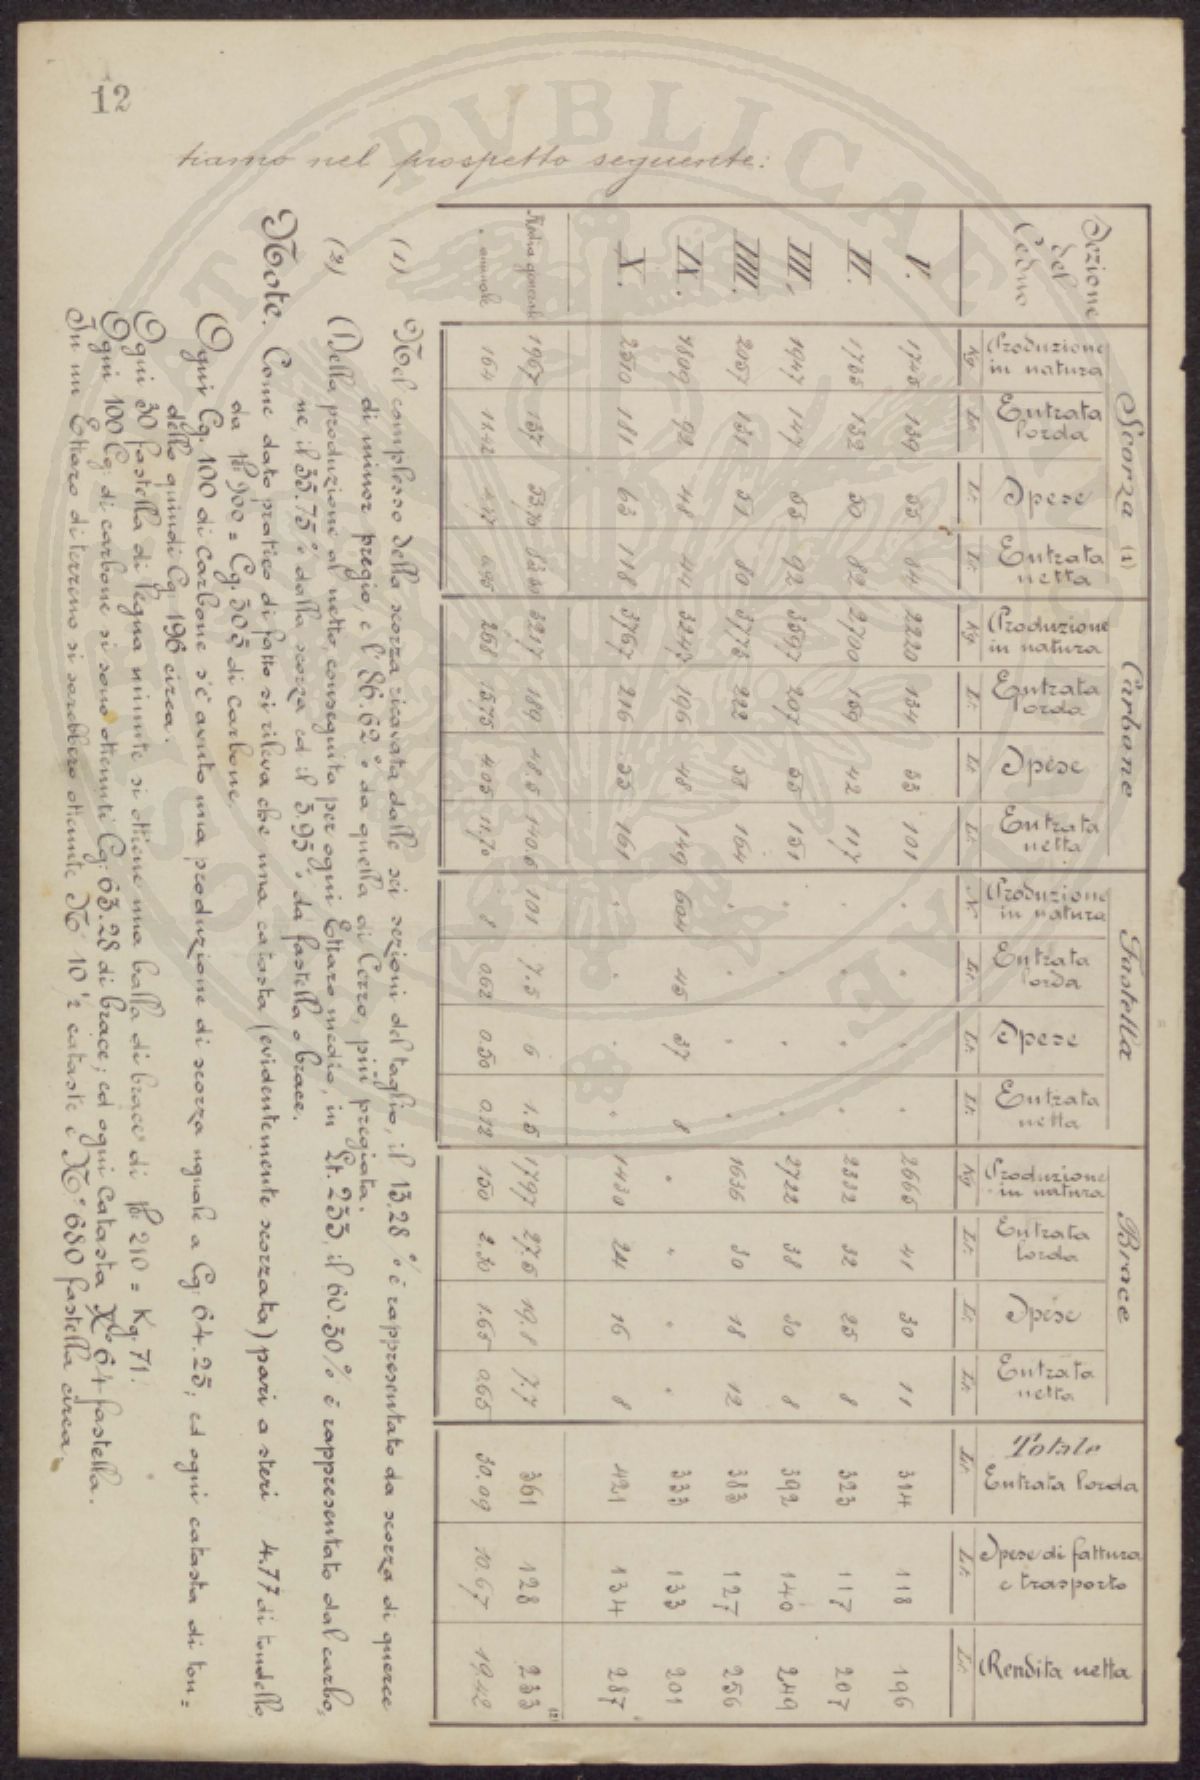 12
tiamo nel prospetto seguente:
Sezione del Ceduo | Scorza (1) | Carbone | Fastella | Brace | Totale Entrata lorda | Spese di fattura e trasporto | Rendita netta
Produzione in natura | Entrata lorda | Spese | Entrata netta | Produzione in natura | Entrata lorda | Spese | Entrata netta | Produzione in natura | Entrata lorda | Spese | Entrata netta | Produzione in natura | Entrata lorda | Spese | Entrata netta
Kg. | Lt. | Lt. | Lt. | Kg. | Lt. | Lt. | Lt. | N. | Lt. | Lt. | Lt. | Kg. | Lt. | Lt. | Lt. | Lt. | Lt. | Lt.
V. | 1745 | 139 | 55 | 84 | 2220 | 134 | 33 | 101 | " | " | " | " | 2665 | 41 | 30 | 11 | 314 | 118 | 196
VI. | 1735 | 132 | 50 | 82 | 2700 | 159 | 42 | 117 | " | " | " | " | 2332 | 32 | 25 | 8 | 323 | 117 | 207
VII. | 1947 | 147 | 55 | 92 | 3597 | 207 | 55 | 151 | " | " | " | " | 2722 | 38 | 30 | 8 | 392 | 140 | 249
VIII. | 2057 | 131 | 51 | 80 | 3773 | 222 | 58 | 164 | " | " | " | " | 1636 | 30 | 18 | 12 | 383 | 127 | 256
IX. | 1809 | 92 | 48 | 44 | 3243 | 196 | 48 | 149 | 604 | 45 | 37 | 8 | " | " | " | " | 333 | 133 | 201
X. | 2510 | 181 | 63 | 118 | 3767 | 216 | 55 | 161 | " | " | " | " | 1430 | 24 | 16 | 8 | 421 | 134 | 287
Media generale | 1967 | 137 | 53.70 | 83.30 | 3217 | 189 | 48.5 | 140.6 | 101 | 7.5 | 6 | 1.5 | 1797 | 27.5 | 19.8 | 7.7 | 361 | 128 | 233 (2)
" annuale | 164 | 11.42 | 4.47 | 6.95 | 268 | 15.75 | 4.05 | 11.70 | 8 | 0.62 | 0.50 | 0.12 | 150 | 2.30 | 1.65 | 0.65 | 30.09 | 10.67 | 19.42
(1) Nel complesso della scorza ricavata dalle sei sezioni del taglio, il 13.28 % è rappresentato da scorza di querce
di minor pregio, e l'86.62 % da quella di Cerro, più pregiata.
(2) Della produzione al netto, conseguita per ogni Ettaro medio, in Lt. 233, il 60.30 % è rappresentato dal carbo,
ne, il 35.75 % dalla scorza ed il 3.95 % da fastella e brace.
Note. Come dato pratico di fatto si rileva che una catasta (evidentemente scorzata) pari a steri 4.77 di tondello
da ℔ 900 = Cg. 305 di carbone.
Ogni Cg. 100 di Carbone s'è avuto una produzione di scorza uguale a Cg. 64.25; ed ogni catasta di ton=
dello quindi Cg. 196 circa.
Ogni 30 fastella di legna minute si ottiene una balla di brace di ℔ 210 = Kg. 71.
Ogni 100 Cg. di carbone si sono ottenuti Cg. 63.28 di brace; ed ogni Catasta N° 64 fastella.
In un Ettaro di terreno si sarebbero ottenute N° 10 ½ cataste e N° 680 fastella circa.
PVBLICAE